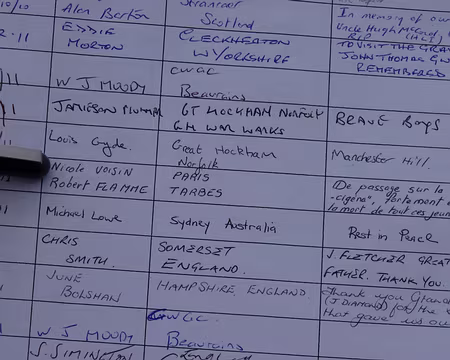 10/10 Alan Burton Stranraer In memory of our
Scotland Uncle Hugh
R.I.P
2.11 EDDIE CLECKHEATON TO VISIT THE GRA
MORTON W YORKSHIRE JOHN THOMAS GW
REMEMBERED
/11 W J MOODY CWGC
Beaurains
JAMIESON GT HOCKHAM NORFOLK BRAVE Boys
GH WAR WALKS
/11 Louis Gyde. Great Hockham Manchester Hill.
Norfolk
Nicole VOISIN PARIS De passage sur la
Robert FLAMME TARBES
la mort de tout ces jeun
Michael Lowe Sydney Australia Rest in Peace
CHRIS SOMERSET J. FLETCHER GREAT
SMITH. ENGLAND. FATHER. THANK YOU.
JUNE HAMPSHIRE, ENGLAND. Thank you
BOLSHAN (J DIAMOND) for the
that gave us our
W J MOODY CWGC
Beaurains
S. SIMINGTON England